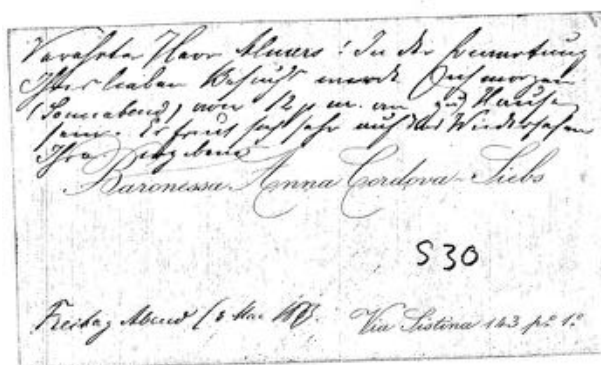 Verehrter Herr Almers! In der Erwartung
Ihres lieben Besuchs werde ich morgen
(Sonnabend) von 12 p m. an zu Hause
sein. Es freut sich sehr auf das Wiedersehen
Ihre ergebene
Baronessa Anna Cordova-Siebs
S 30
Freitag Abend (8 Mai
Via Sistina 143 pº 1º